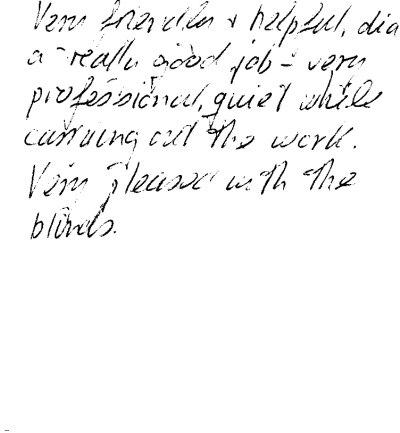 Very friendly + helpful, did
a really good job - very
professional, quiet while
carrying out the work.
Very pleased with the
blinds.